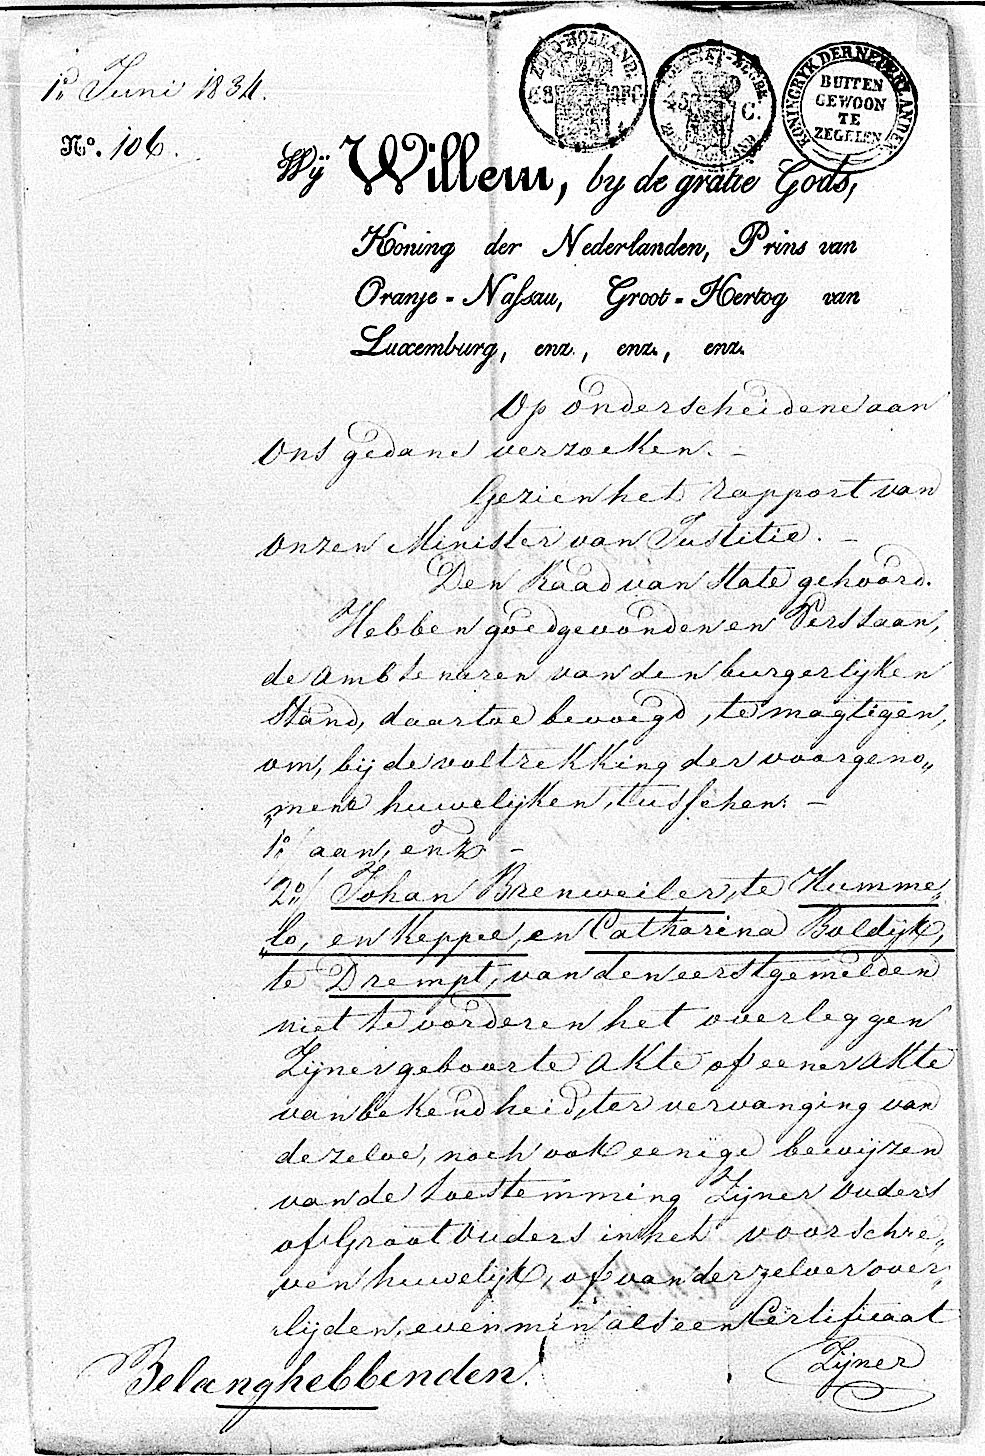 ZUID-HOLLAND.
KONINGRYK DER NEDERLANDEN
BUITEN
GEWOON
TE
ZEGELEN
45 C.
1º. Juni 1834.
Nº. 106.
Wij Willem, by de gratie Gods,
Koning der Nederlanden, Prins van
Oranje-Nassau, Groot-Hertog van
Luxemburg, enz., enz., enz.
Op onderscheidene aan
Ons gedane verzoeken. –
Gezien het rapport van
onzen Minister van Justitie. –
Den Raad van State gehoord.
Hebben goedgevonden en Verstaan,
de ambtenaren van den burgerlijken
Stand, daartoe bevoegd, te magtigen,
om, bij de voltrekking der voorgeno„
„mene huwelijken, tusschen: –
1º/ aan, enz –
2º/ Johan Brenweiler, te Humme„
„lo, en Keppel, en Catharina Boldijk,
te Drempt, van den eerstgemelden
niet te vorderen het overleggen
Zijner geboorte akte of eener akte
van bekendheid, ter vervanging van
dezelve, noch ook eenige bewijzen
van de toestemming Zijner Ouders
of Groot Ouders in het voorschre„
„ven huwelijk, of van derzelver over„
„lijden, evenmin als een Certificaat
Zijner
Belanghebbenden.